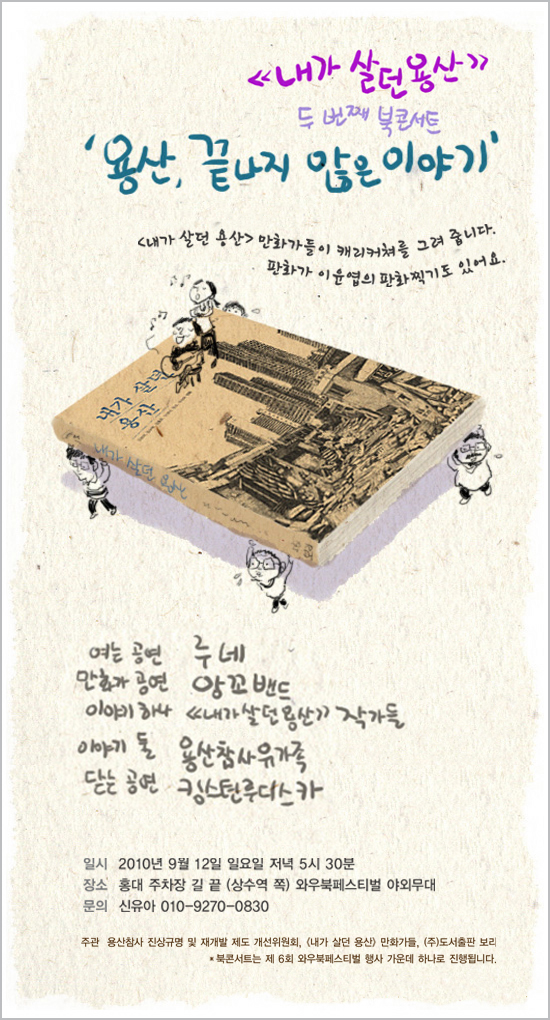 《내가 살던용산》
두 번째 북콘서트
'용산, 끝나지 않은 이야기'
<내가 살던 용산> 만화가들이 캐리커쳐를 그려 줍니다.
판화가 이윤엽의 판화찍기도 있어요.
내가 살던
용산
내가 살던 용산
여는 공연 루네
만화가 공연 앙꼬밴드
이야기 하나 《내가살던용산》 작가들
이야기 둘 용산참사유가족
닫는 공연 킹스턴루디스카
일시 2010년 9월 12일 일요일 저녁 5시 30분
장소 홍대 주차장 길 끝 (상수역 쪽) 와우북페스티벌 야외무대
문의 신유아 010-9270-0830
주관 용산참사 진상규명 및 재개발 제도 개선위원회, 〈내가 살던 용산〉 만화가들, (주)도서출판 보리
*북콘서트는 제 6회 와우북페스티벌 행사 가운데 하나로 진행됩니다.